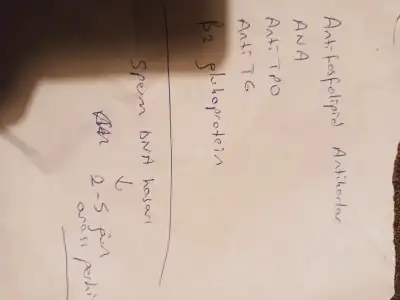 Antifosfolipid Antikorlar
ANA
Anti TPO
Anti TG
β2 glukoprotein
Sperm DNA hasarı
↓
2-5 gün
arası perhi